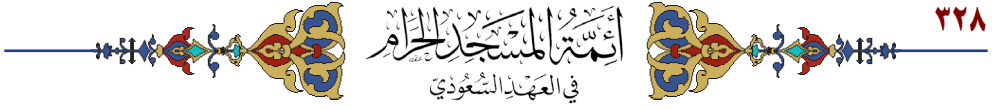 ٣٢٨
أَئِمَّةُ المَسْجِدِ الحَرَامِ
فِي العَهْدِ السُّعُودِيّ